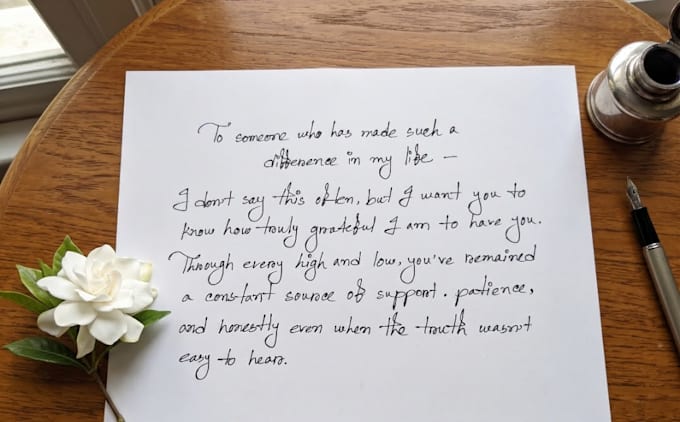 To someone who has made such a
difference in my life —
I don't say this often, but I want you to
know how truly grateful I am to have you.
Through every high and low, you've remained
a constant source of support. patience,
and honestly even when the truth wasn't
easy to hear.